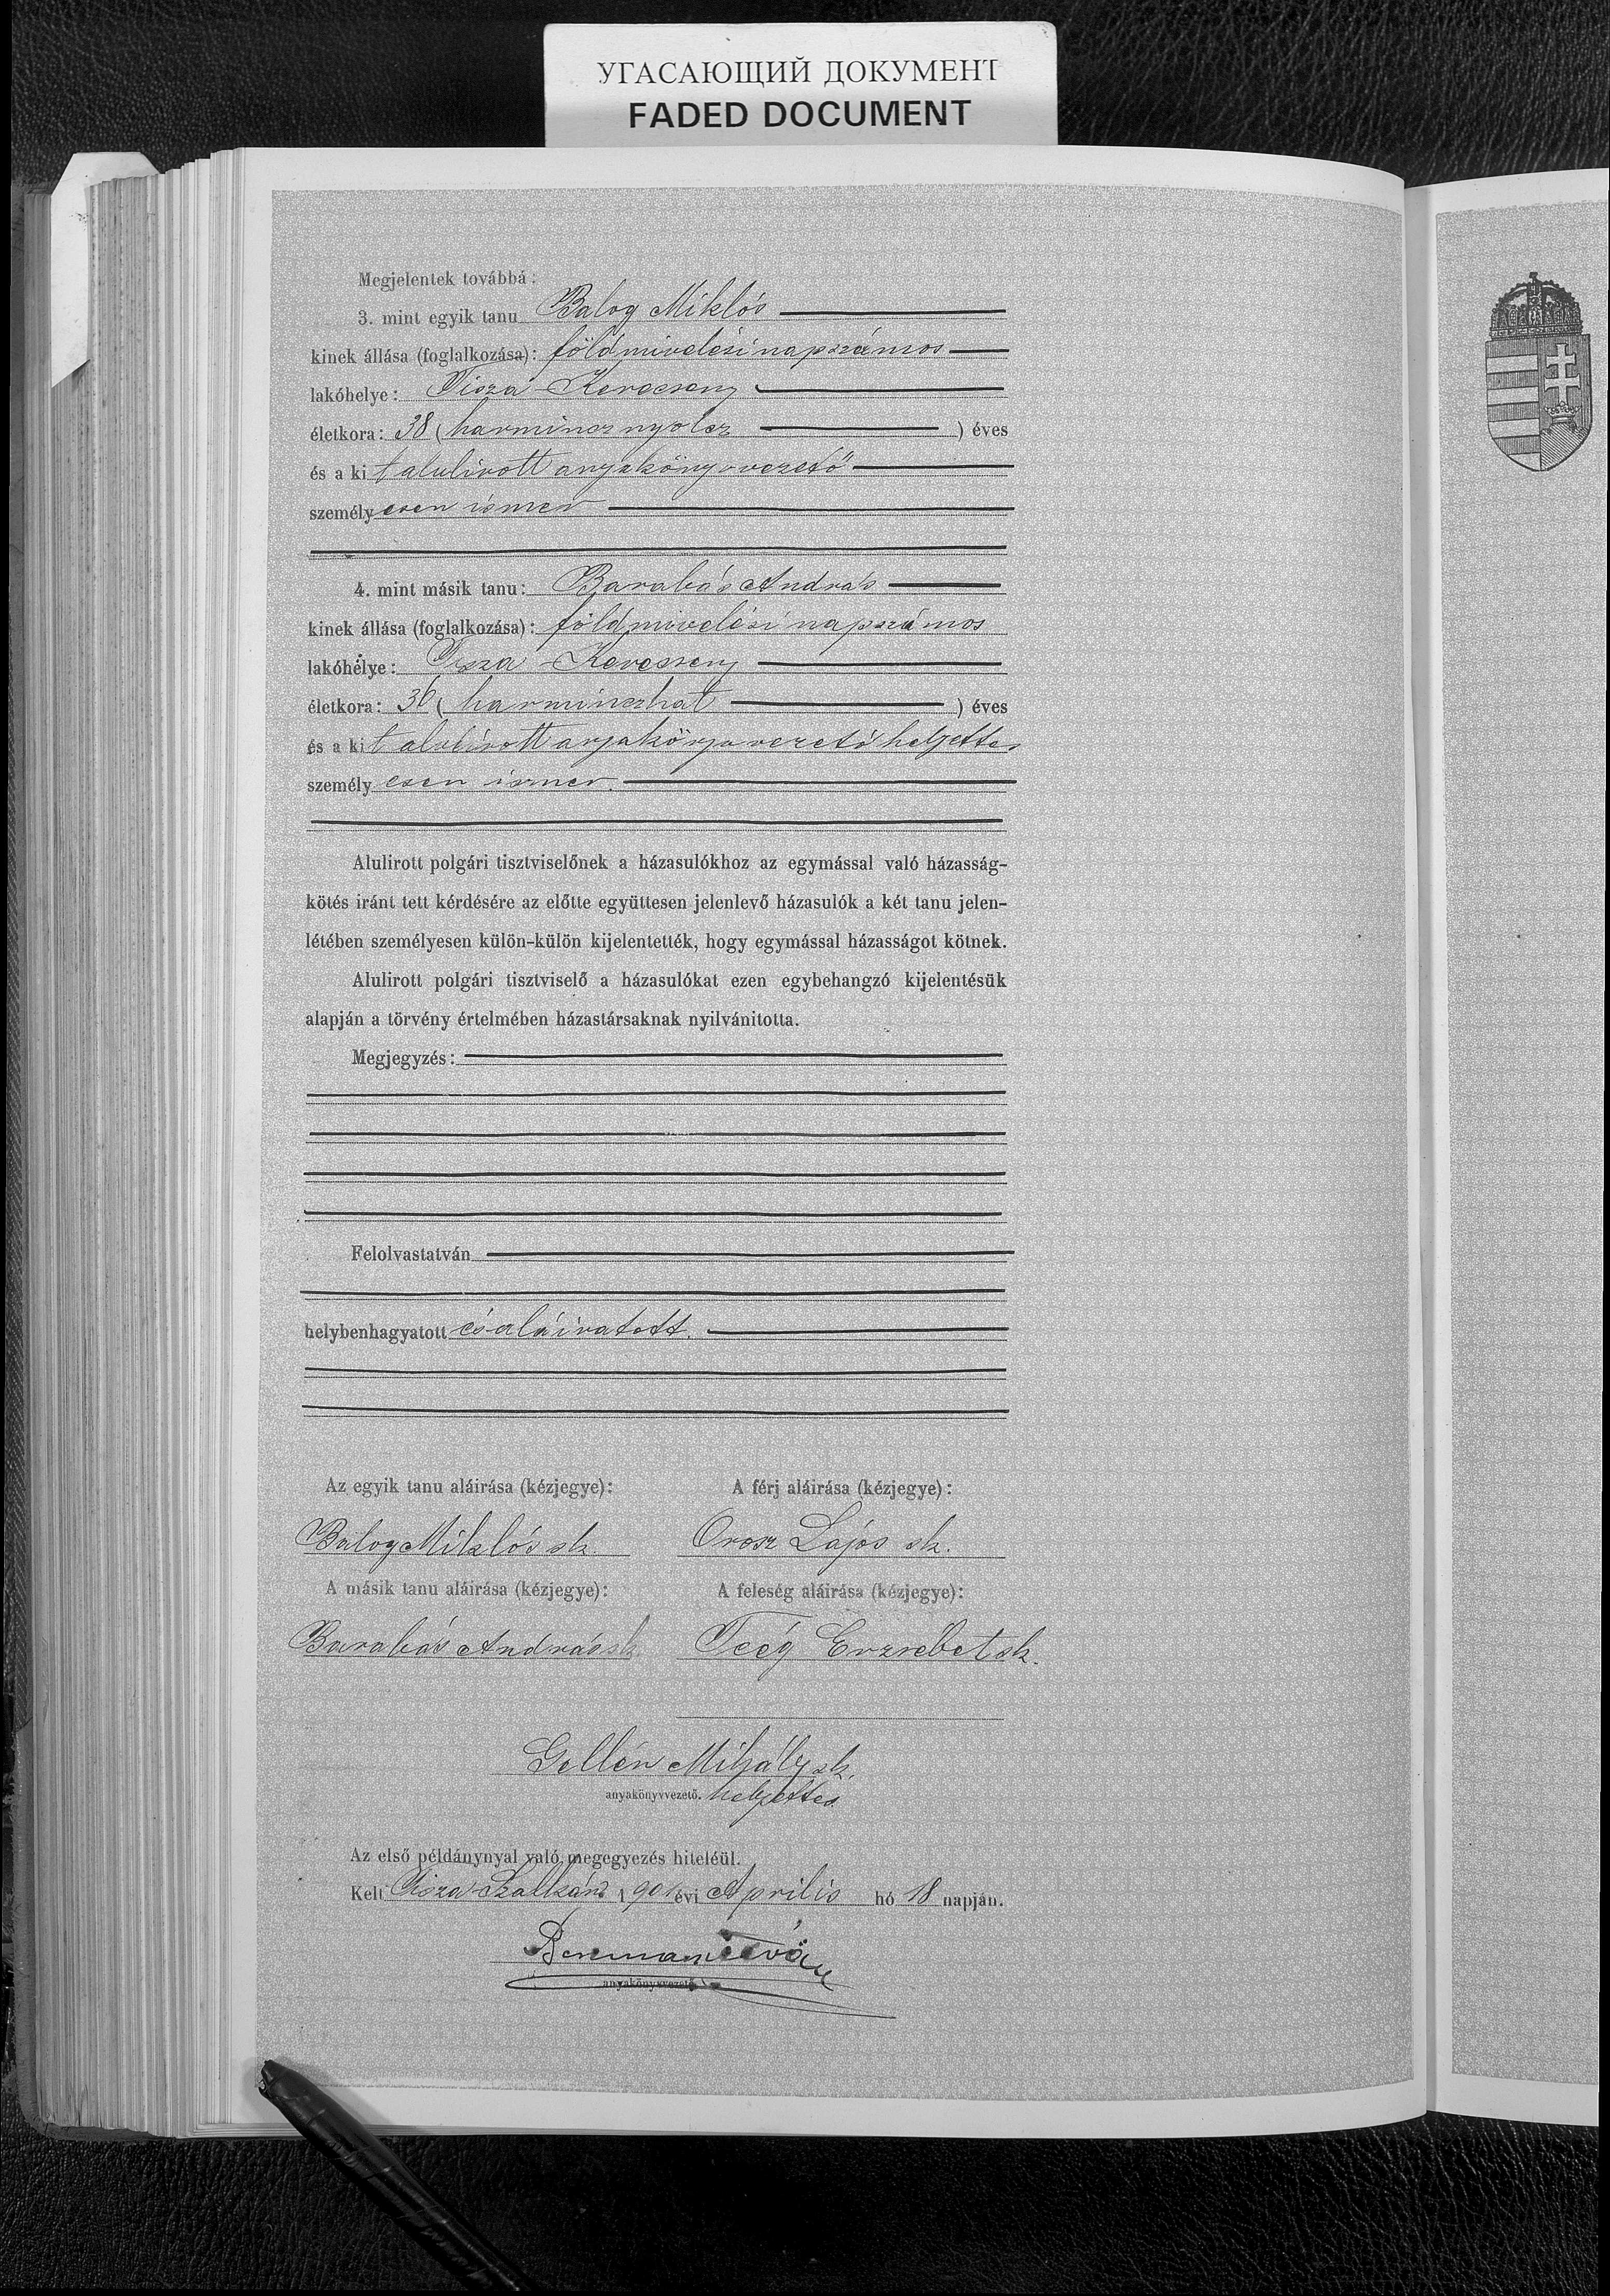 УГАСАЮЩИЙ ДОКУМЕНТ
FADED DOCUMENT
Megjelentek továbbá:
3. mint egyik tanu Balog Miklós
kinek állása (foglalkozása): földmivelési napszámos
lakóhelye: Tisza-Kerecseny
életkora: 38 (harmincz nyolcz ) éves
és a ki t alulírott anyakönyvvezető
személy esen ismer
4. mint másik tanu: Barabás András
kinek állása (foglalkozása): földmivelési napszámos
lakóhelye: Tisza-Kerecseny
életkora: 36 (harminczhat ) éves
és a ki t alulírott anyakönyvvezető helyettes
személy esen ismer.
Alulirott polgári tisztviselőnek a házasulókhoz az egymással való házasság-
kötés iránt tett kérdésére az előtte együttesen jelenlevő házasulók a két tanu jelen-
létében személyesen külön-külön kijelentették, hogy egymással házasságot kötnek.
Alulirott polgári tisztviselő a házasulókat ezen egybehangzó kijelentésük
alapján a törvény értelmében házastársaknak nyilvánitotta.
Megjegyzés:
Felolvastatván
helybenhagyatott és aláiratott.
Az egyik tanu aláirása (kézjegye): A férj aláirása (kézjegye):
Balog Miklós sk. Orosz Lajos sk.
A másik tanu aláirása (kézjegye): A feleség aláirása (kézjegye):
Barabás András sk. Teég Erzsébet sk.
Gellén Mihály sk.
anyakönyvvezető. helyettes
Az első példánynyal való megegyezés hiteléül.
Kelt Tisza-Szalkán 1901 évi Április hó 18 napján.
anyakönyvvezető